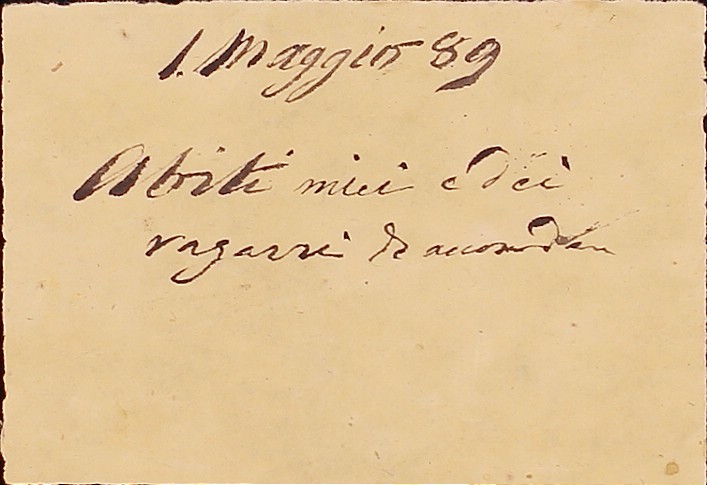 1. Maggio 89
Abiti miei e dei
ragazzi da accomodare